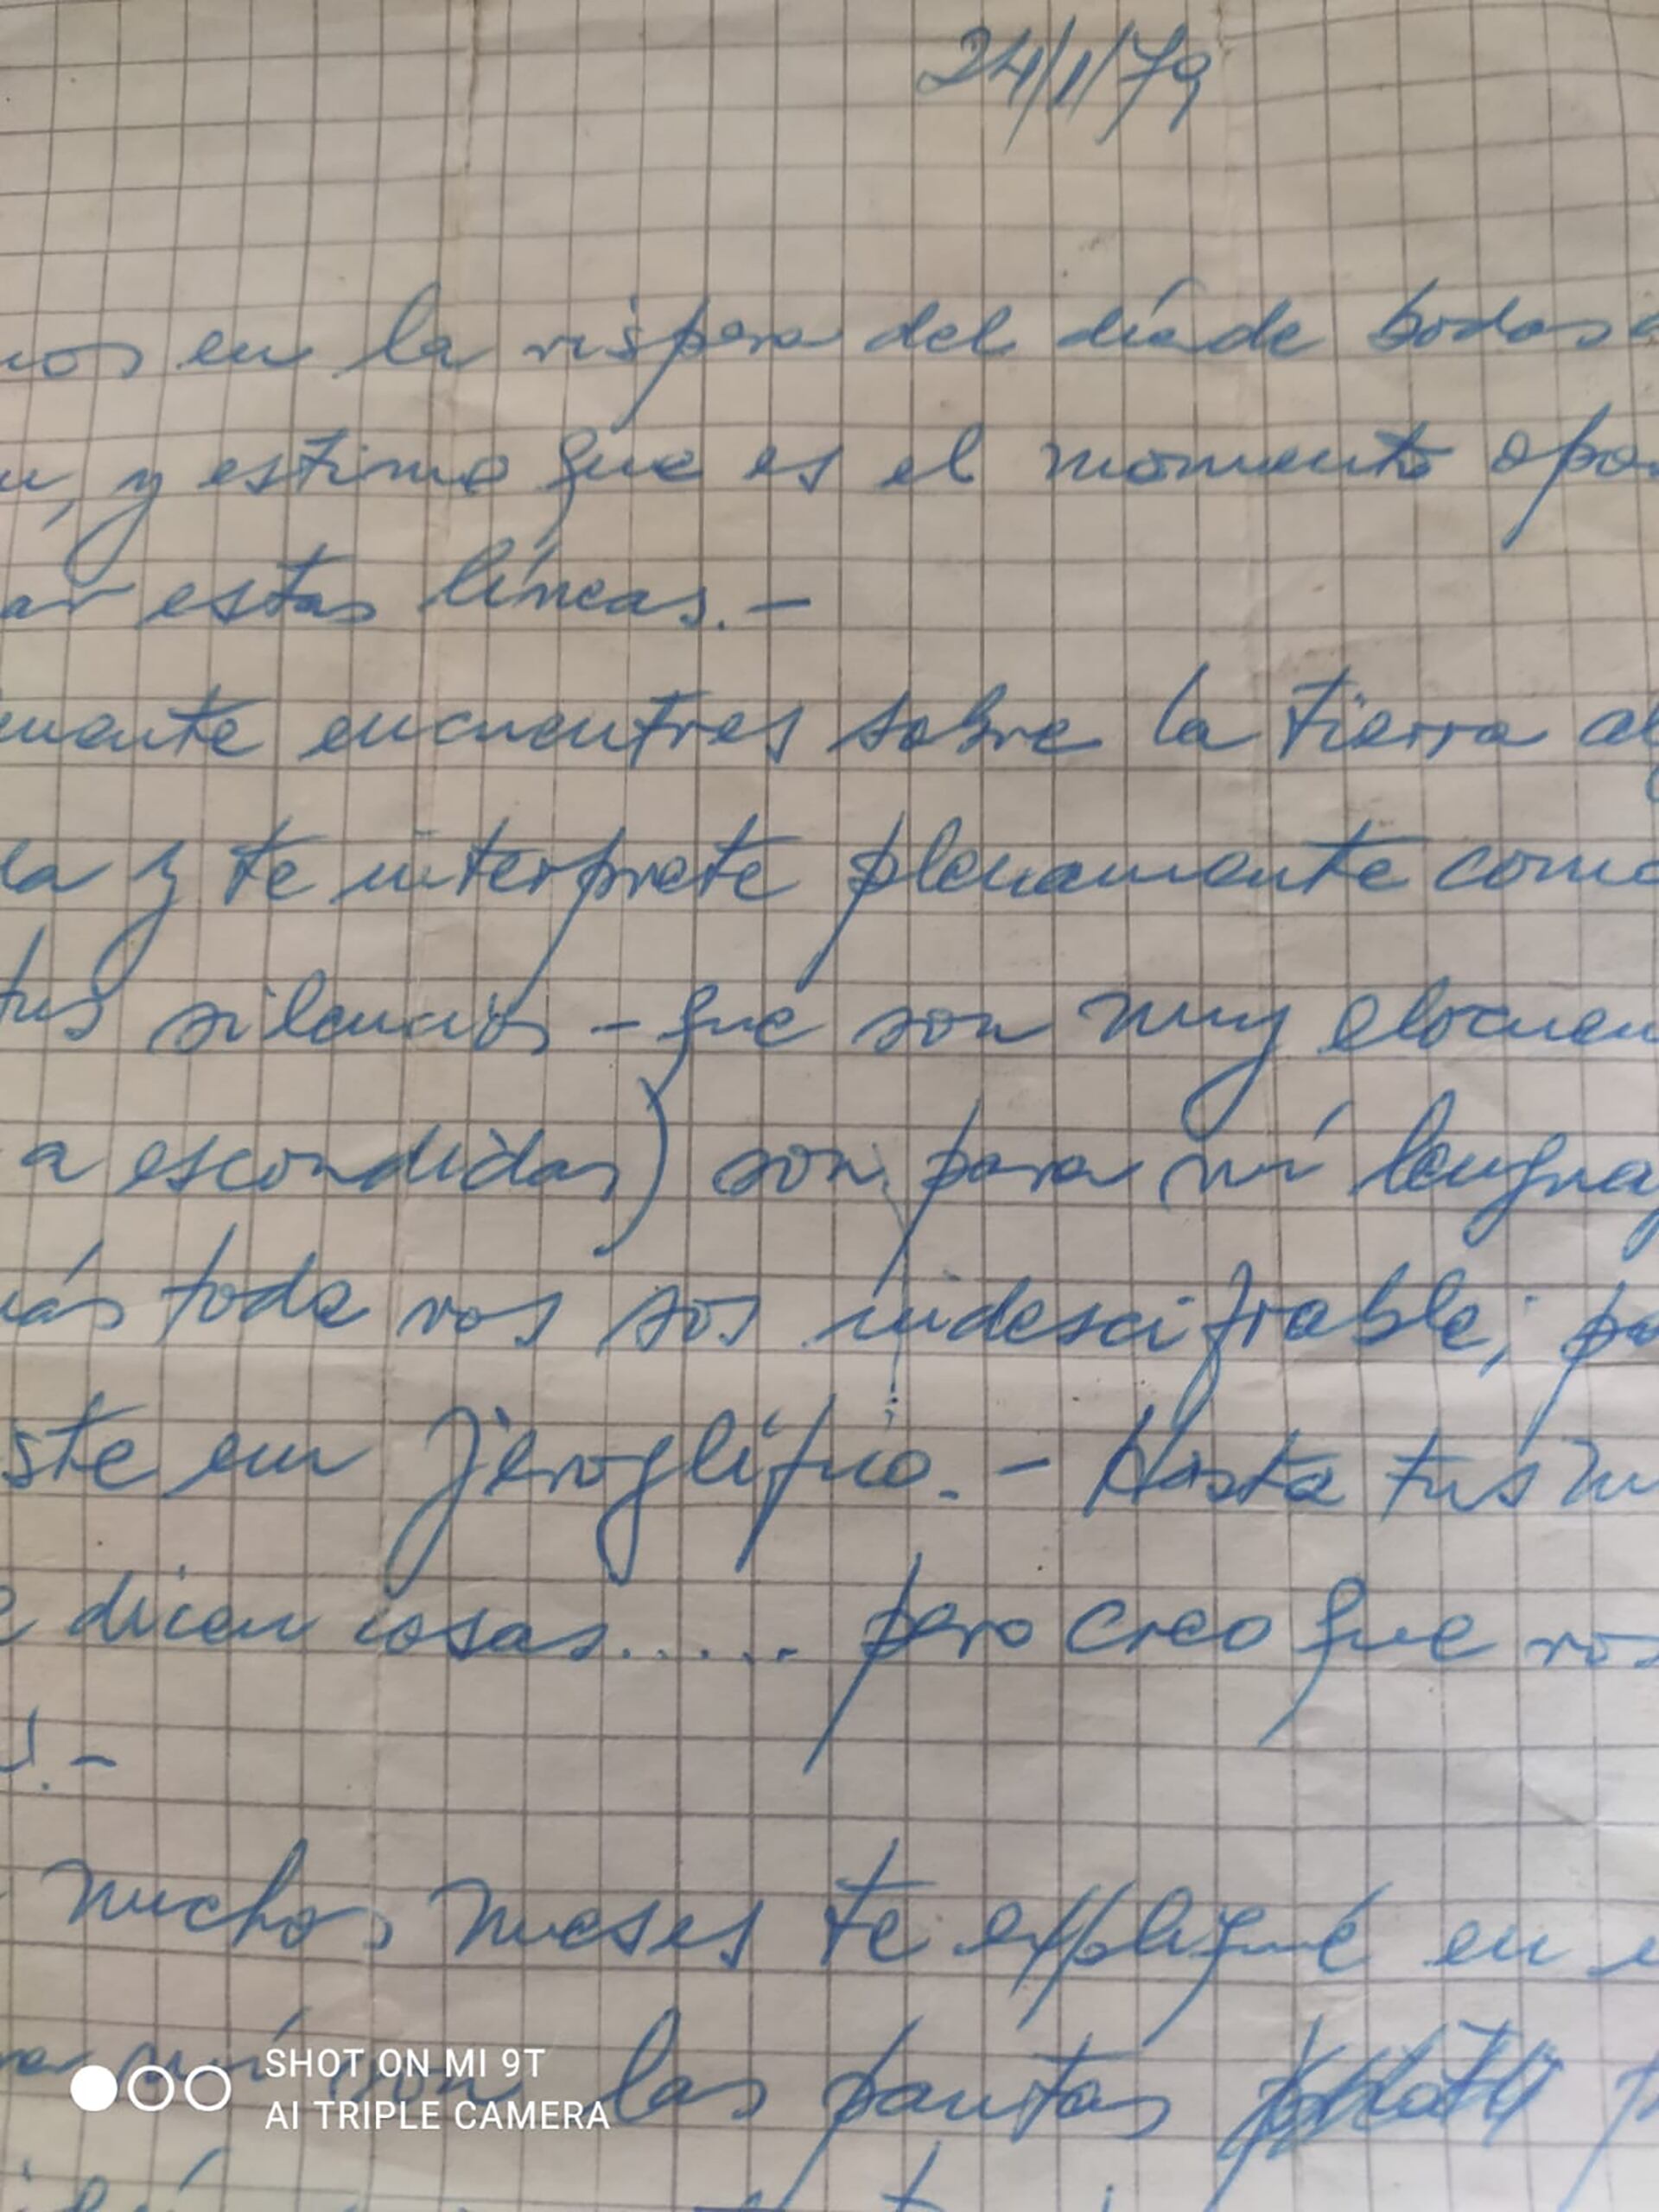 24/1/79
nos en la vispera del día de bodas
y estimo que es el momento opo
ar estas líneas.-
mente encuentres sobre la tierra al
la y te interprete plenamente como
tus silencios - que son muy elocuen
a escondidas) son para mí lengua
ás toda vos sos indescifrable; po
ste en Jeroglífico. - Hasta tus
dicen cosas...... pero creo que vos
muchos meses te expliqué en
mí son las pautas
SHOT ON MI 9T
AI TRIPLE CAMERA